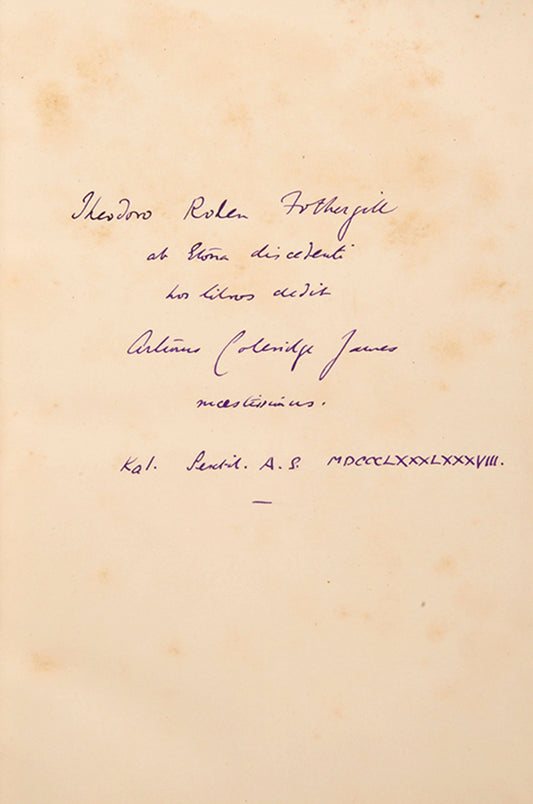 Theodoro Rolen Fothergill
ab Etona discedenti
hos libros dedit
Arturus Coleridge James
maestissimus.
Kal. Sextil. A.S. MDCCCLXXXLXXXVIII.